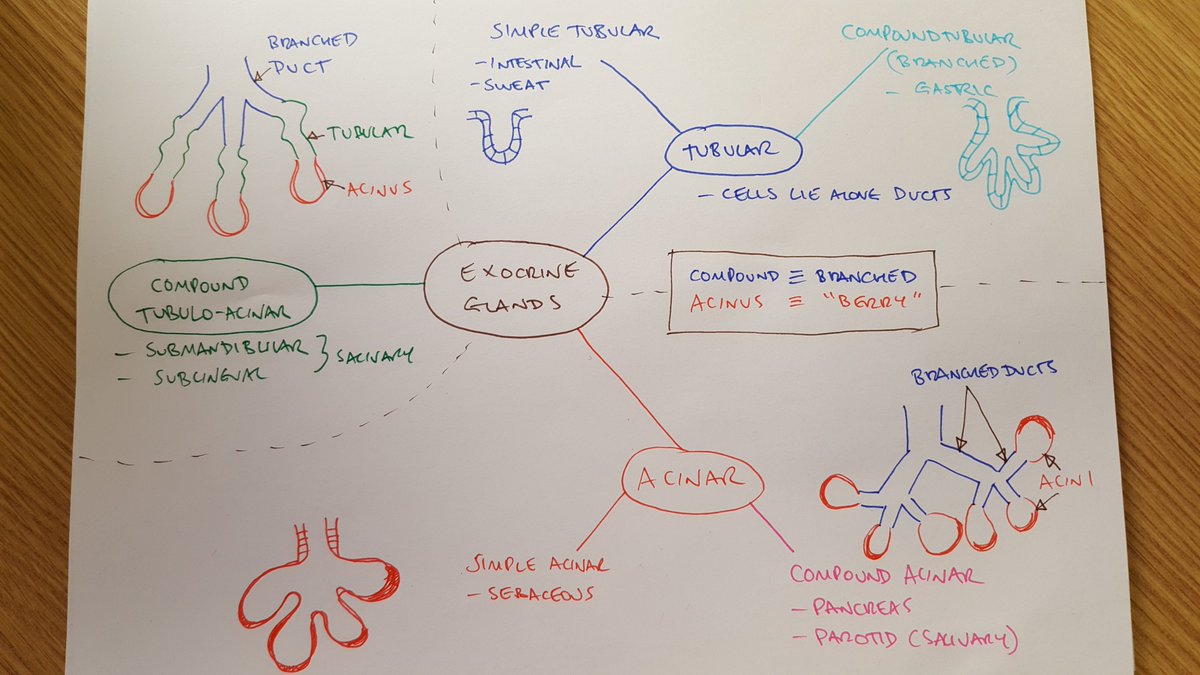 BRANCHED
DUCT
TUBULAR
ACINUS
SIMPLE TUBULAR
- INTESTINAL
- SWEAT
COMPOUND TUBULAR
(BRANCHED)
- GASTRIC
TUBULAR
- CELLS LIE ALONG DUCTS
COMPOUND
TUBULO-ACINAR
- SUBMANDIBULAR
- SUBLINGUAL
} SALIVARY
EXOCRINE
GLANDS
COMPOUND ≡ BRANCHED
ACINUS ≡ "BERRY"
BRANCHED DUCTS
ACINI
ACINAR
SIMPLE ACINAR
- SEBACEOUS
COMPOUND ACINAR
- PANCREAS
- PAROTID (SALIVARY)